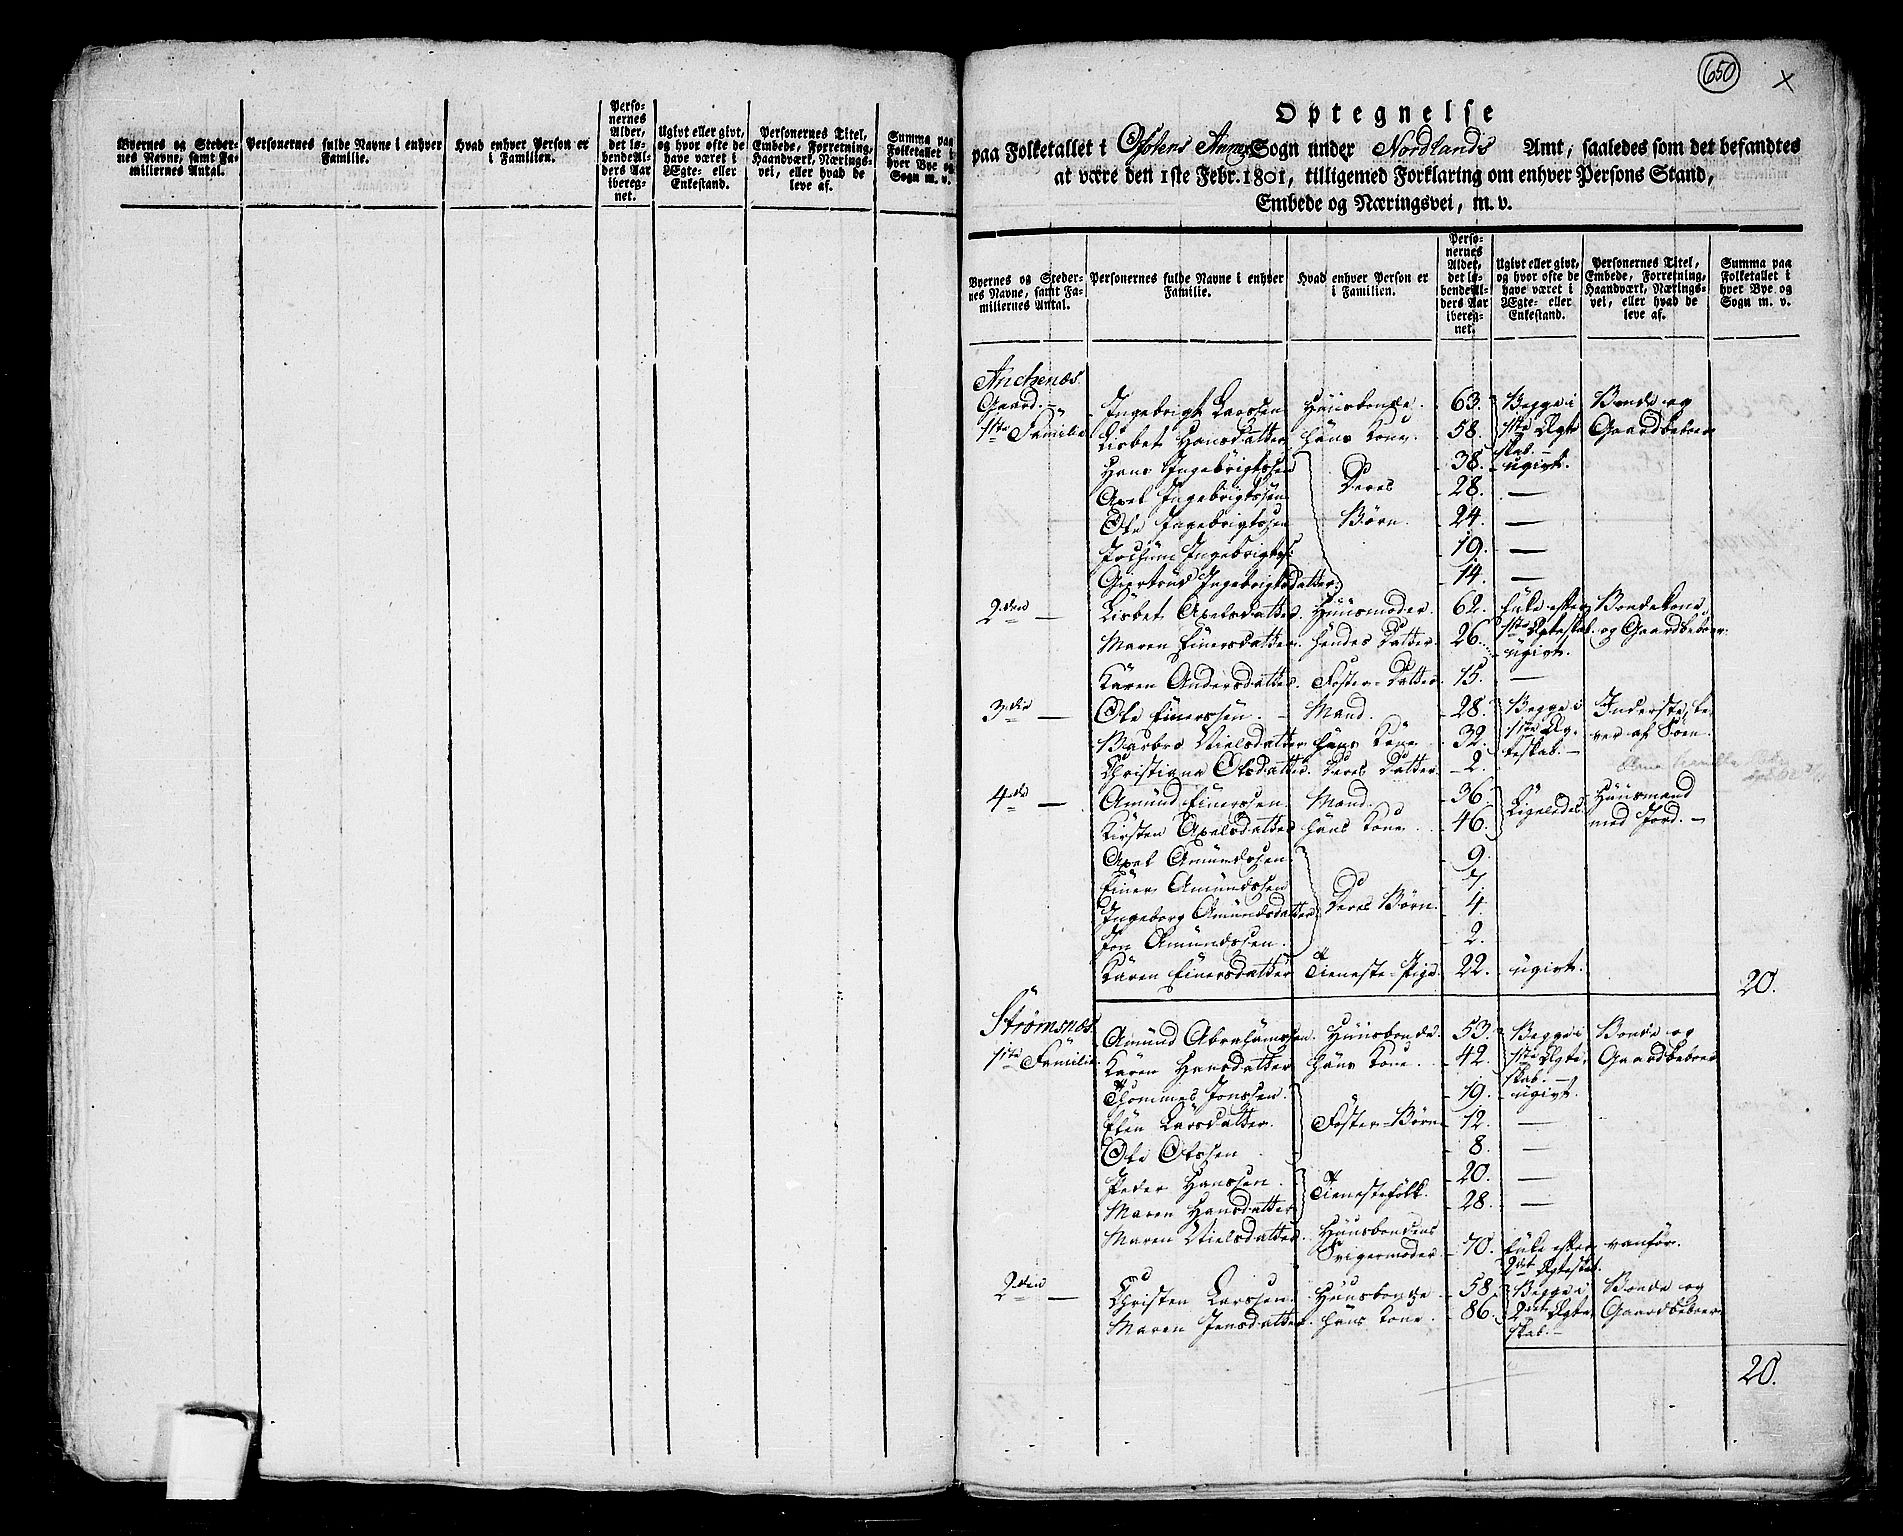 Byernes og Steder-
nes Navne, samt Fa-
miliernes Antal.
Personernes fulde Navne i enhver
Familie.
Hvad enhver Person er
i Familien.
Perso-
nernes
Alder,
det lø-
bende Al-
ders Aar
ibereg-
net.
Ugivt eller givt,
og hvor ofte de
have været i
Ægte- eller
Enkestand.
Personernes Titel,
Embede, Forretning,
Haandværk, Nærings-
vei, eller hvad de
leve af.
Summa paa
Folketallet i
hver Bye og
Sogn m. v.
650
x
Optegnelse
paa Folketallet i Ofotens Annex Sogn under Nordlands Amt, saaledes som det befandtes
at være den 1ste Febr. 1801, tilligemed Forklaring om enhver Persons Stand,
Embede og Næringsvei, m. v.
Byernes og Steder-
nes Navne, samt Fa-
miliernes Antal.
Personernes fulde Navne i enhver
Familie.
Hvad enhver Person er
i Familien.
Perso-
nernes
Alder,
det lø-
bende Al-
ders Aar
ibereg-
net.
Ugivt eller givt,
og hvor ofte de
have været i
Ægte- eller
Enkestand.
Personernes Titel,
Embede, Forretning,
Haandværk, Nærings-
vei, eller hvad de
leve af.
Summa paa
Folketallet i
hver Bye og
Sogn m. v.
Anchenæs
Gaard. – Ingebrigt Larssen Huusbonde. 63. Begge i Bonde og
1ste Familie Lisbet Hansdatter hans Kone. 58. 1ste Ægte Gaardbeboer
skab. –
Hans Ingebrigtssen Deres 38. ugivt.
Axel Ingebrigtssen 28. —
Ole Ingebrigtssen Børn. 24. —
Jochum Ingebrigts: 19. —
Giertrud Ingebrigtsdatter. 14. —
2den — Lisbet Axelsdatter. Huusmoder. 62. Enke efter Bondekone
1ste Ægteskab. og Gaardbeboer.
Maren Einersdatter. hendes Datter. 26. ugivt.
Karen Andersdatter. Foster-Datter. 15. —
3die — Ole Einerssen. – Mand. 28. Begge i Inderste, le-
Barbro Nielsdatter hans Kone 32. 1ste Æg- ver af Søen.
Christiana Olsdatter. Deres Datter. 2. teskab. –
4de — Amund Einerssen. Mand. 36. Ligeledes Huusmand
Kirsten Axelsdatter hans Kone. 46. med Jord. –
Axel Amundssen 9.
Einer Amundssen 7.
Ingeborg Amundsdatter Deres Børn. 4.
Jon Amundssen. 2.
Karen Einersdatter Tieneste-Pige. 22. ugivt.
20.
Strømsnæs Amund Abrahamssen. Huusbonde. 53. Begge i Bonde og
1ste Familie Karen Hansdatter hans Kone. 42. 1ste Ægte Gaardbeboer
skab. –
Thommes Jonssen. 19. ugivt.
Elen Larsdatter. Foster-Børn 12. —
Ole Olssen 8. —
Peder Hanssen. Tienestefolk. 20. —
Maren Hansdatter 28. —
Maren Nielsdatter. Huusbondens
Svigermoder. 70. Enke efter vanfør.
2det Ægteskab.
2den — Christen Larssen. Huusbonde 58. Begge i Bonde og
Maren Jensdatter. hans Kone. 86. 2det Ægte Gaardbeboer
skab. –
20.